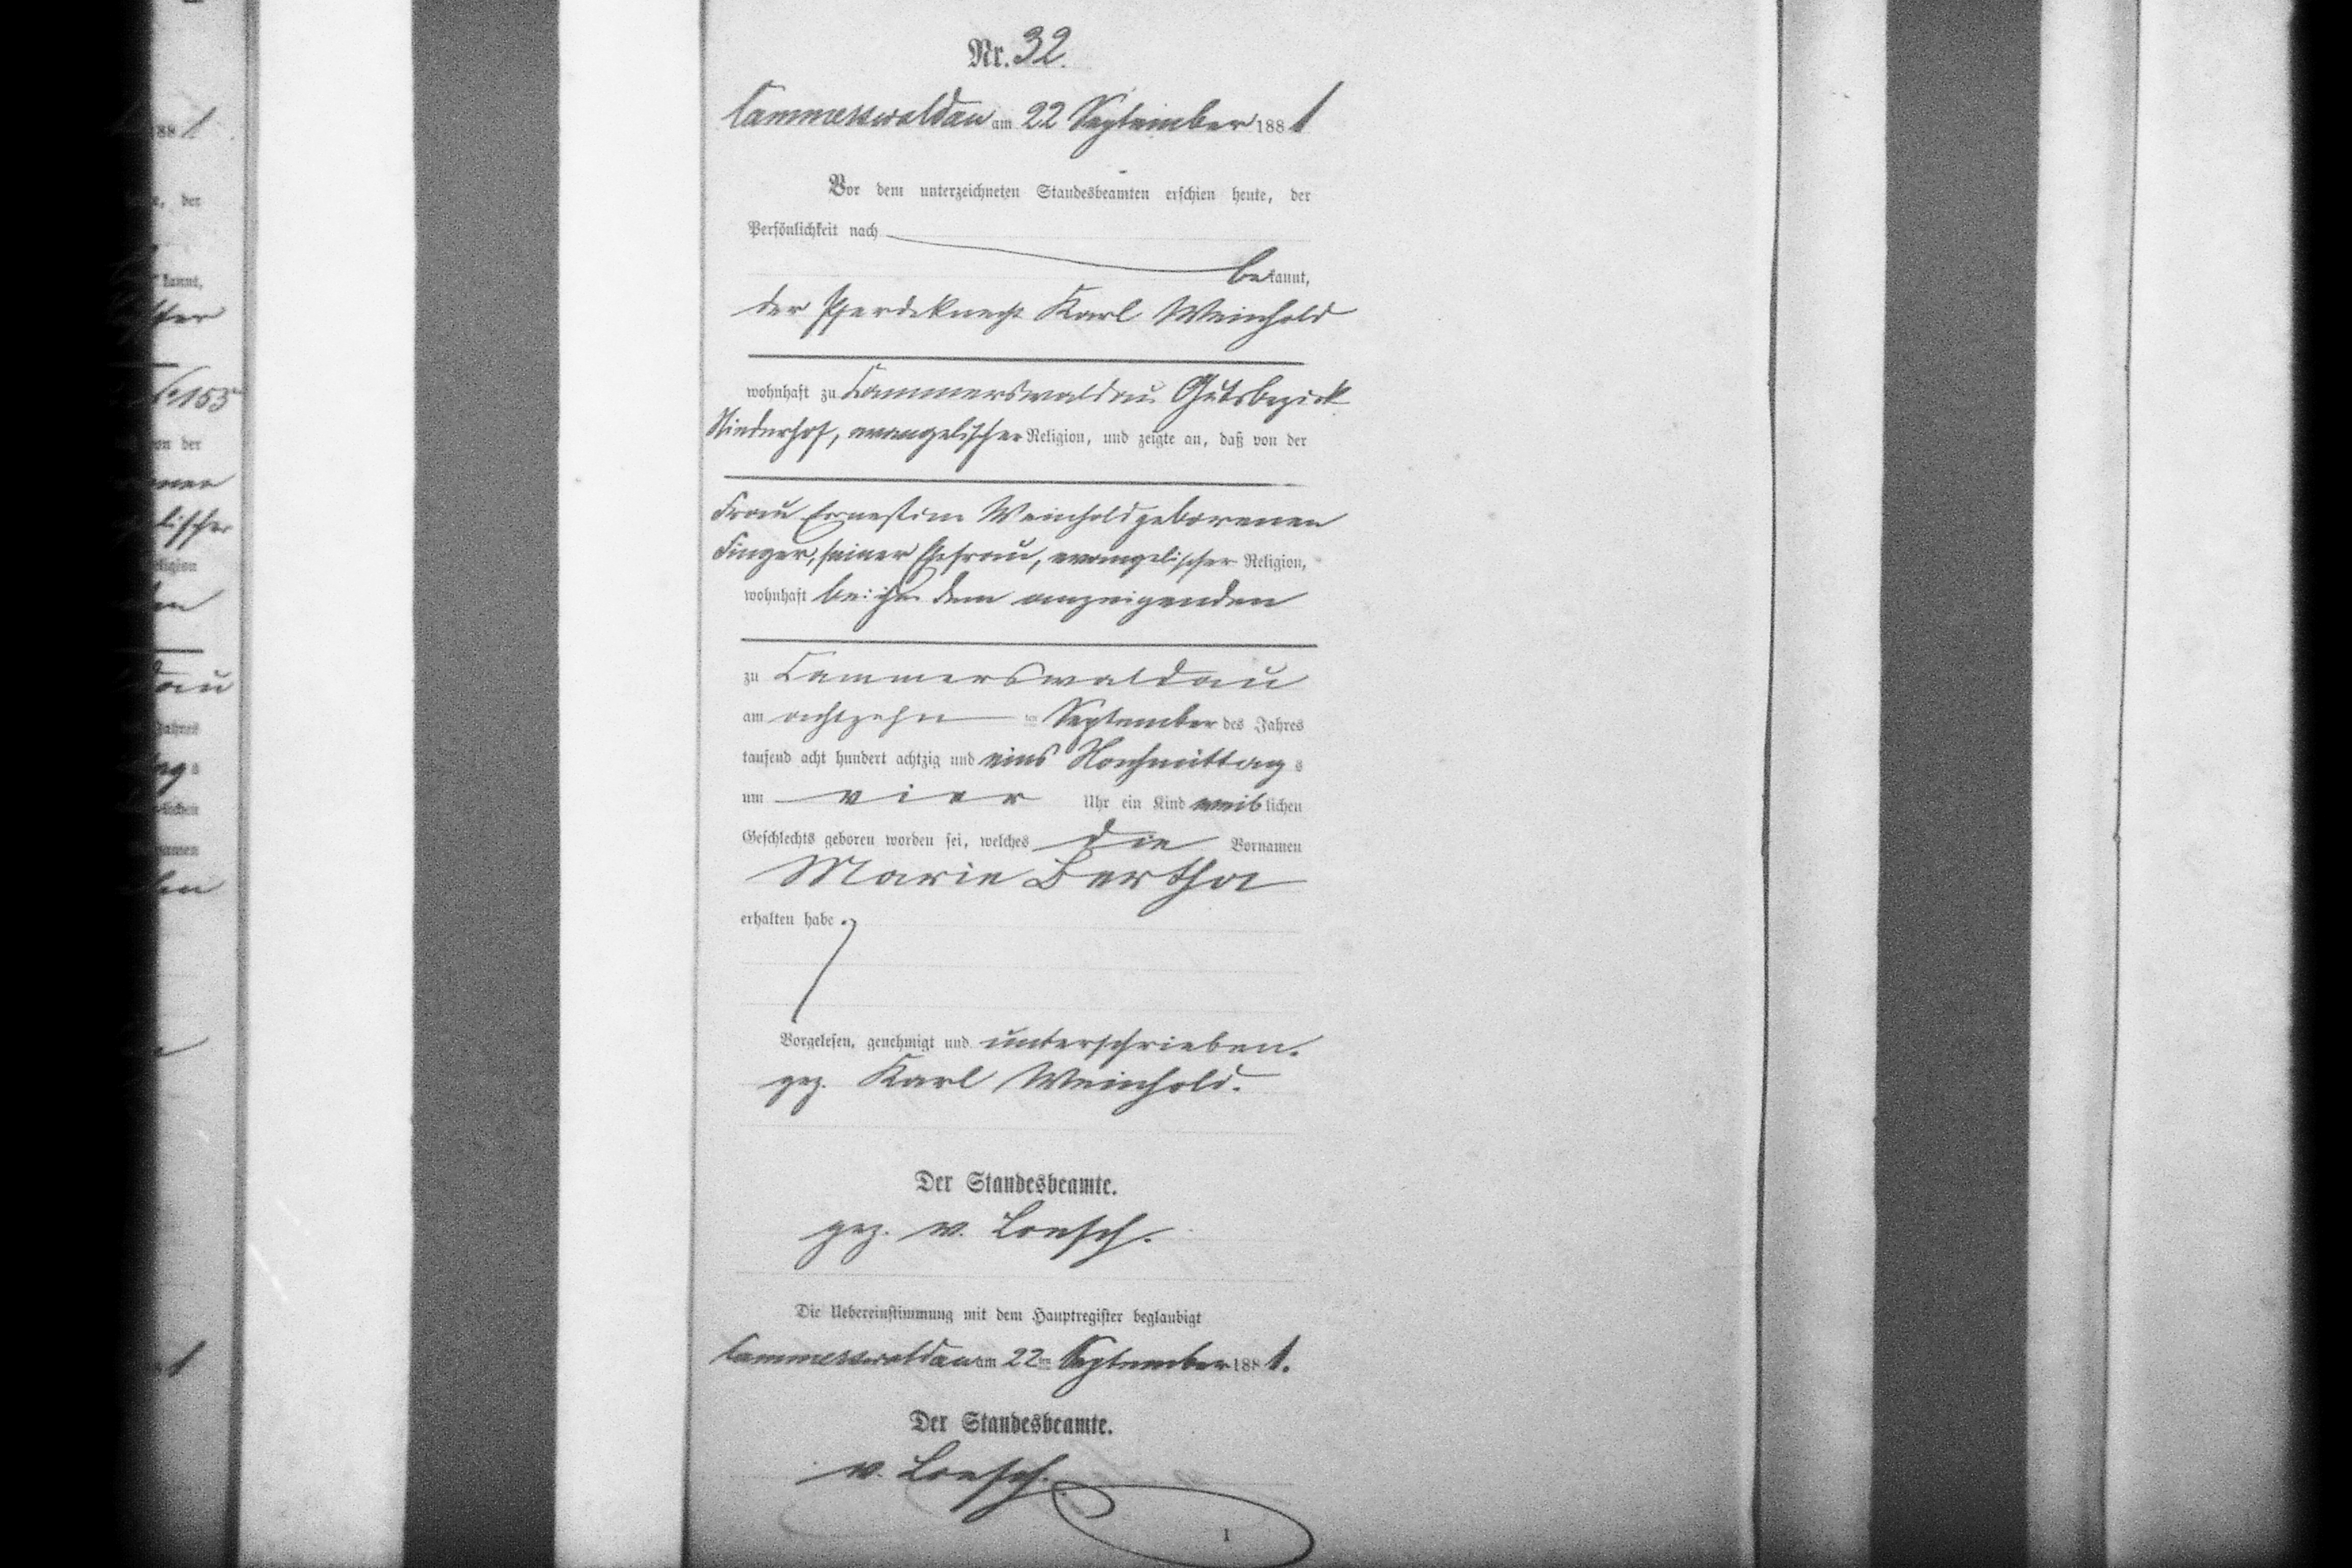 Nr. 32.
Cammerswaldau am 22 September 1881
Vor dem unterzeichneten Standesbeamten erschien heute, der
Persönlichkeit nach
bekannt,
der Pferdeknecht Karl Weinhold
wohnhaft zu Cammerswaldau Gutsbezirk
Niederhof, evangelischer Religion, und zeigte an, daß von der
Frau Ernestine Weinhold geborenen
Finger, seiner Ehefrau, evangelischer Religion,
wohnhaft bei dem anzeigenden
zu Cammerswaldau
am achtzehn ten September des Jahres
tausend acht hundert achtzig und eins Nachmittags
um vier Uhr ein Kind weiblichen
Geschlechts geboren worden sei, welches die Vornamen
Marie Bertha
erhalten habe.
Vorgelesen, genehmigt und unterschrieben.
gez. Karl Weinhold.
Der Standesbeamte.
gez. v. Loesch.
Die Uebereinstimmung mit dem Hauptregister beglaubigt
Cammerswaldau am 22ten September 1881.
Der Standesbeamte.
v. Loesch.
1